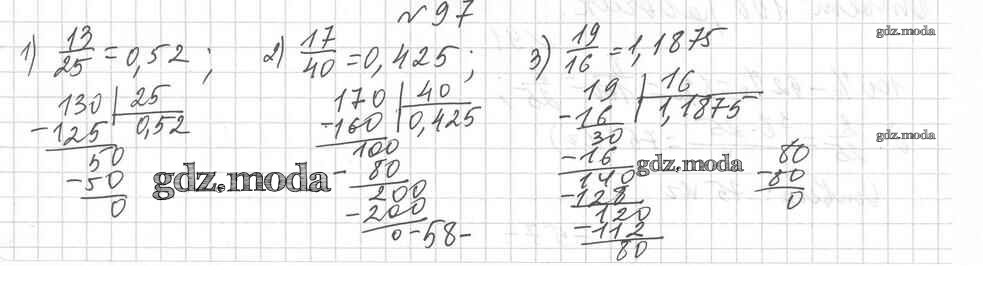 № 97
1) 13/25 = 0,52 ; 2) 17/40 = 0,425 ; 3) 19/16 = 1,1875
130 | 25
-125 | 0,52
50
-50
0
170 | 40
-160 | 0,425
100
- 80
200
-200
0
-58-
19 | 16
-16 | 1,1875
30
-16
140
-128
120
-112
80
80
-80
0
gdz.moda
gdz.moda
gdz.moda
gdz.moda